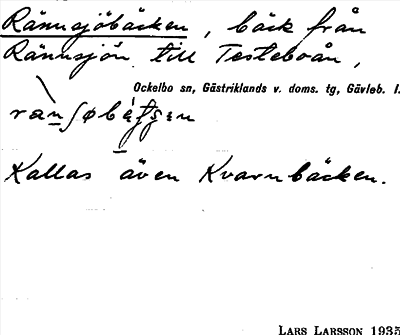 Rännsjöbäcken, bäck från
Rännsjön till Testeboån,
Ockelbo sn, Gästriklands v. doms. tg, Gävleb. l.
Kallas även Kvarnbäcken.
LARS LARSSON 1935